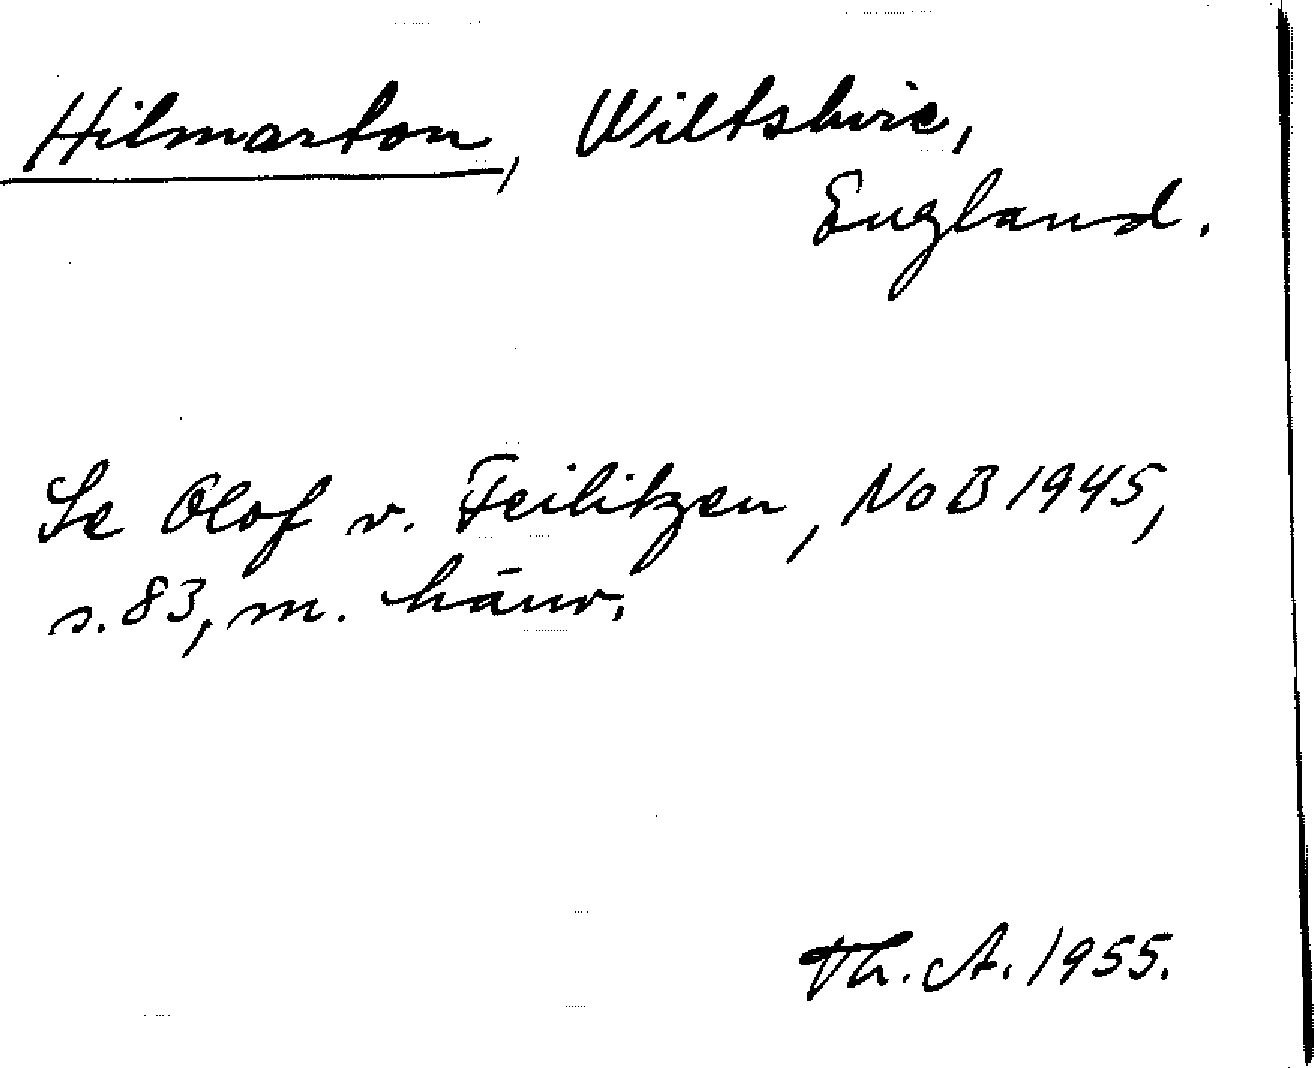 Hilmarton, Wiltshire,
England.
Se Olof v. Feilitzen, NoB 1945,
s. 83, m. hänv.
Th. A. 1955.